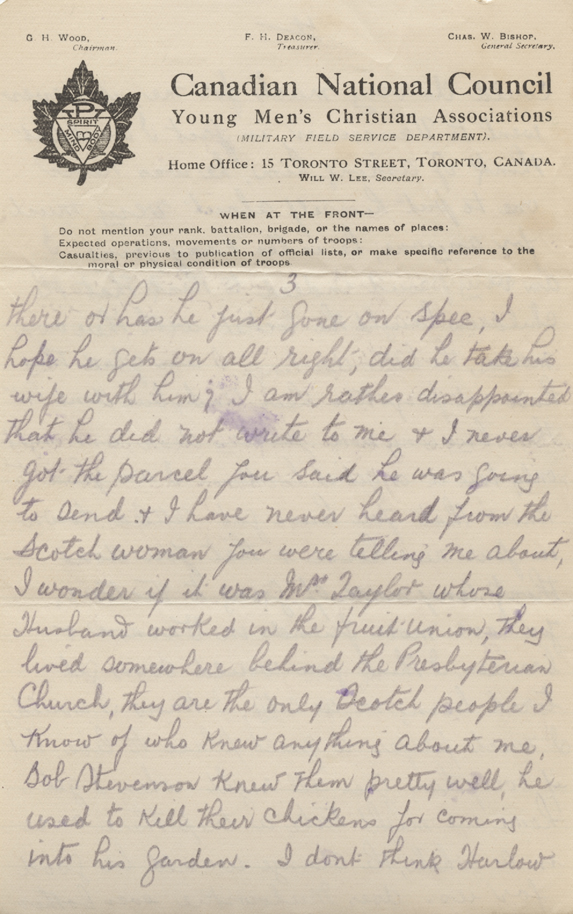 G. H. Wood, Chairman.
F. H. Deacon, Treasurer.
Chas. W. Bishop, General Secretary.
SPIRIT
MIND
BODY
Canadian National Council
Young Men's Christian Associations
(MILITARY FIELD SERVICE DEPARTMENT).
Home Office: 15 Toronto Street, Toronto, Canada.
Will W. Lee, Secretary.
WHEN AT THE FRONT—
Do not mention your rank, battalion, brigade, or the names of places:
Expected operations, movements or numbers of troops:
Casualties, previous to publication of official lists, or make specific reference to the
moral or physical condition of troops
3
there or has he just gone on spec, I
hope he gets on all right, did he take his
wife with him; I am rather disappointed
that he did not write to me & I never
got the parcel you said he was going
to send & I have never heard from the
Scotch woman you were telling me about,
I wonder if it was Mrs Taylor whose
Husband worked in the fruit Union, they
lived somewhere behind the Presbyterian
Church, they are the only Scotch people I
know of who knew anything about me,
Bob Stevenson knew them pretty well, he
used to kill their chickens for coming
into his garden. I dont think Harlow